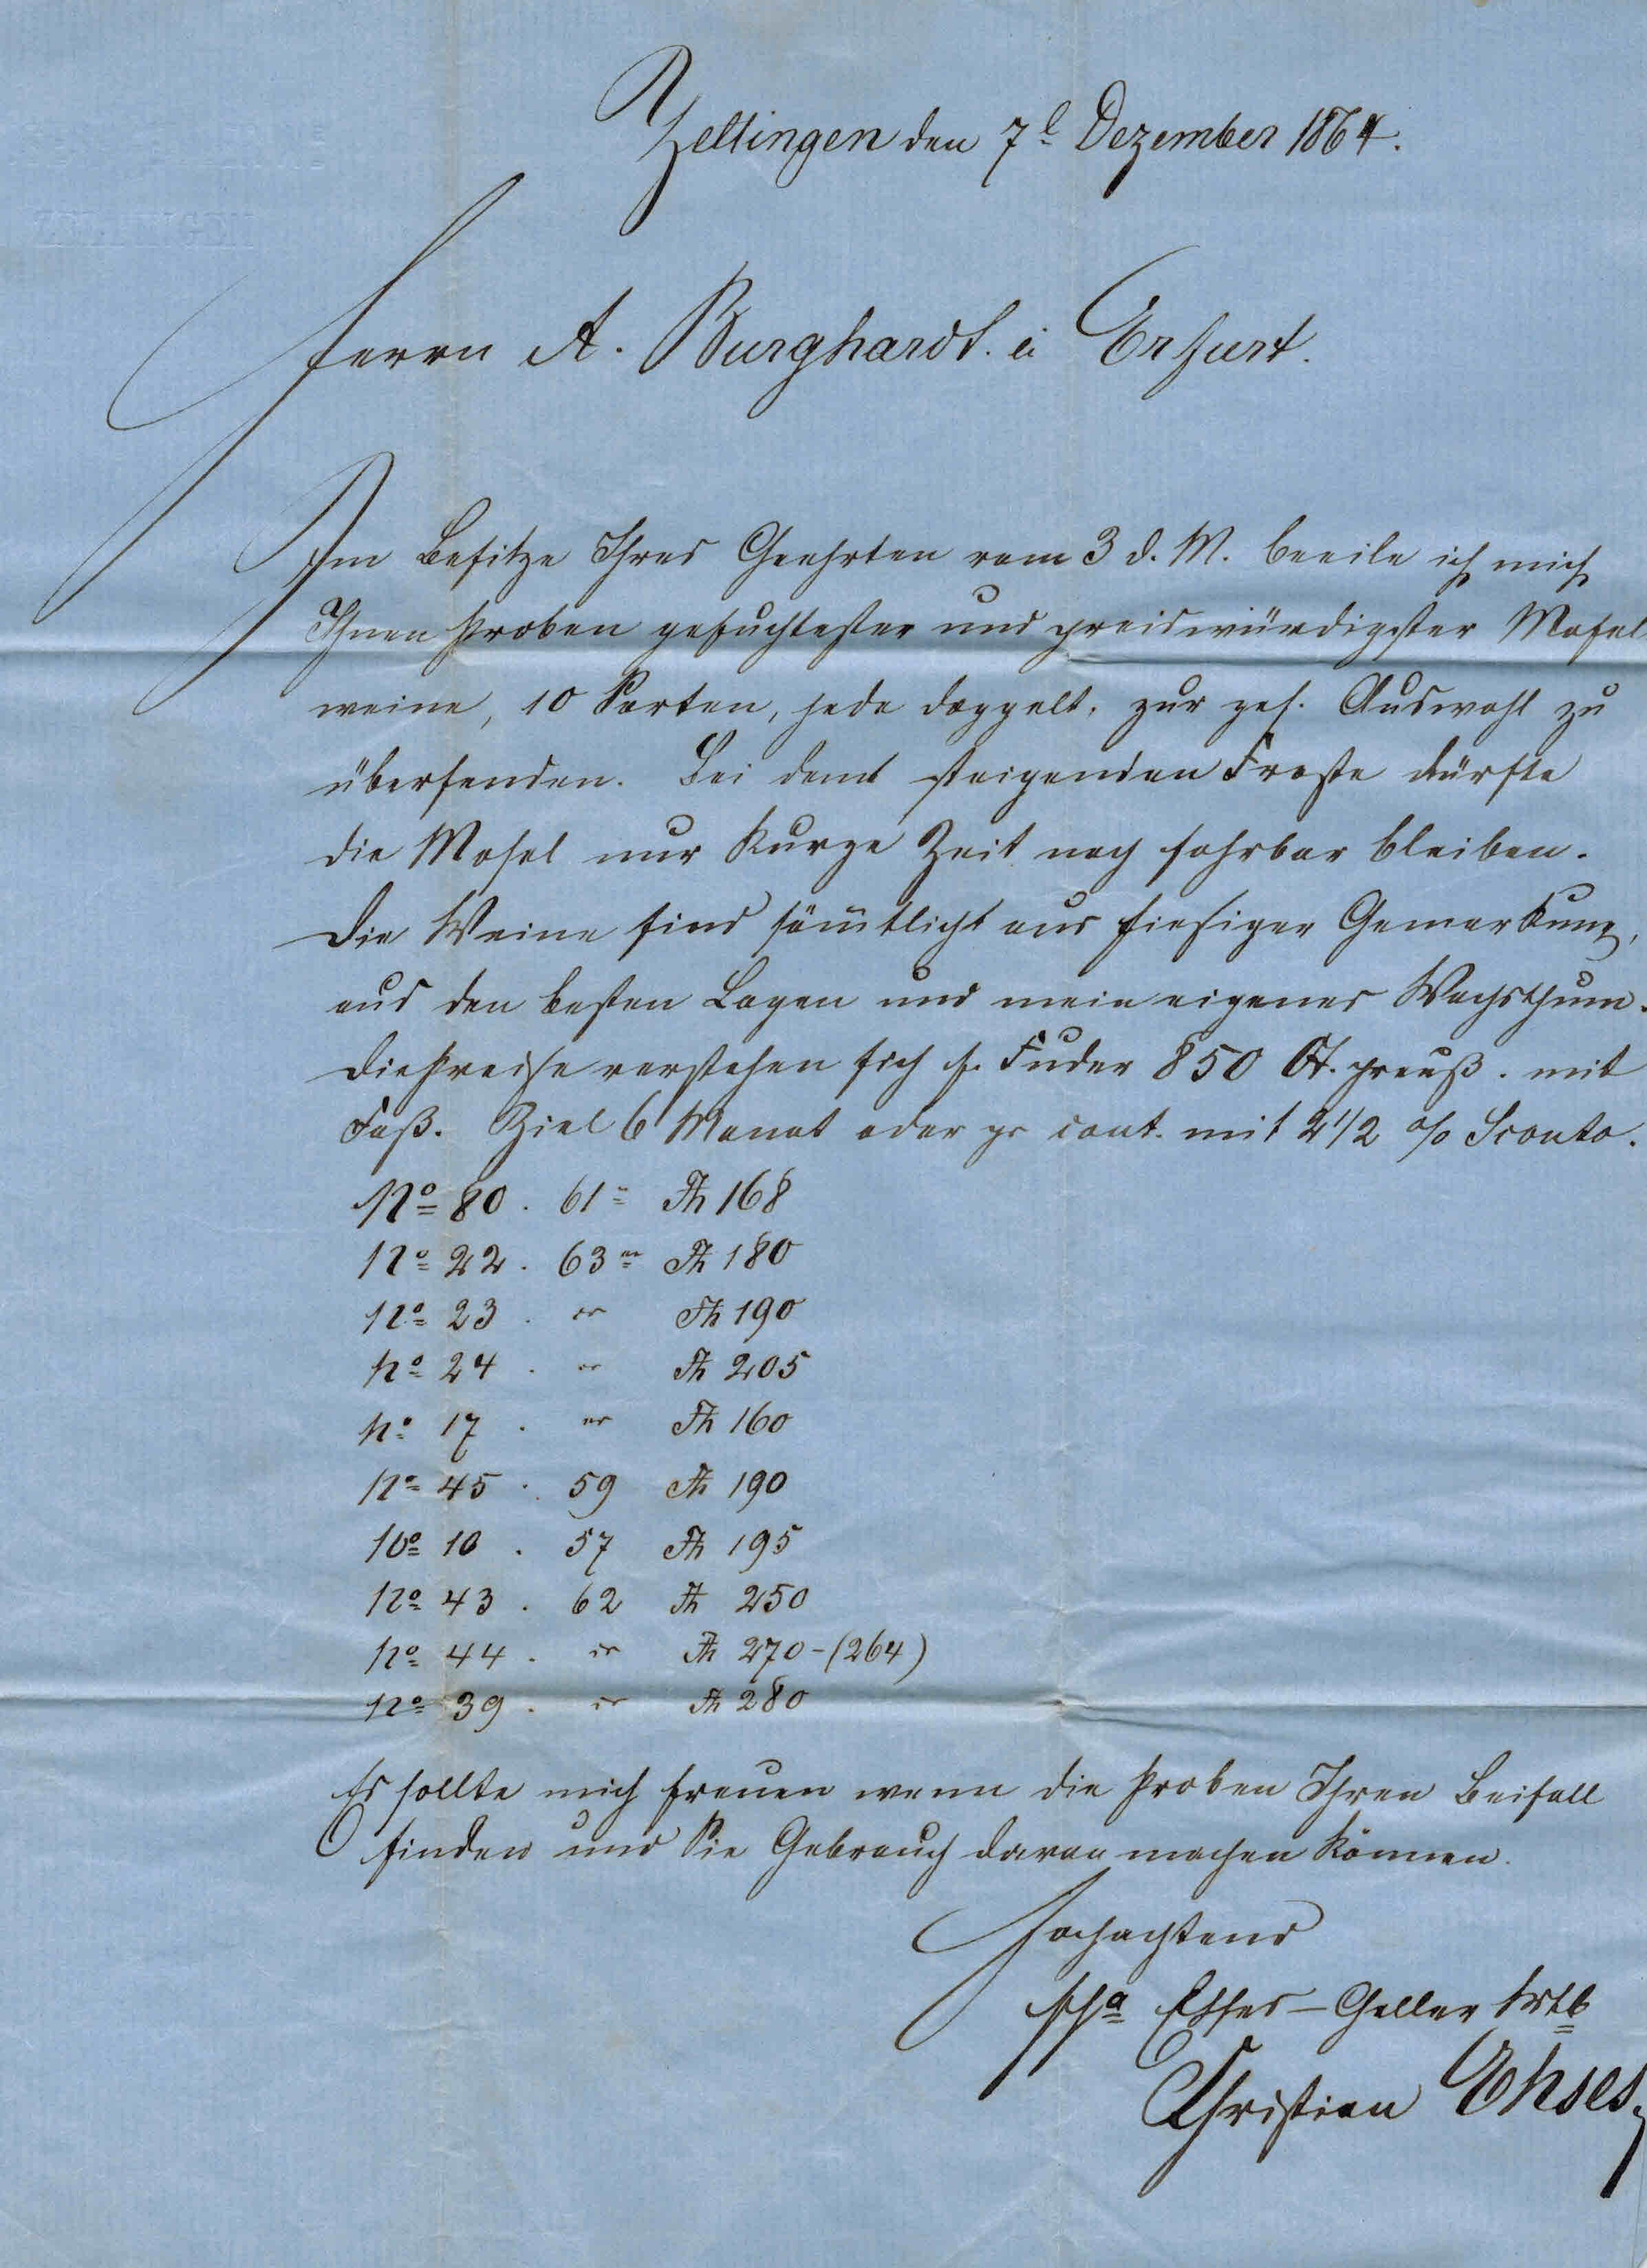 Zeltingen den 7t Dezember 1864.
Herrn A. Burghardt. in Erfurt.
Im Besitze Ihres Geehrten vom 3 d. M. beeile ich mich
Ihnen Proben gesuchtester und preiswürdigster Mosel
weine, 10 Sorten, jede doppelt, zur gef. Auswahl zu
übersenden. Bei dem steigenden Froste dürfte
die Mosel nur kurze Zeit noch fahrbar bleiben.
Die Weine sind sämtlicht aus hiesiger Gemarkung,
aus den besten Lagen und mein eigenes Wachsthum.
Die Preise verstehen sich p. Fuder 850 Qt. preuß. mit
Faß. Ziel 6 Monat oder pr cont. mit 2 1/2 % Sconto.
No 80 . 61er Th 168
No 22 . 63er Th 180
No 23 . " Th 190
No 24 . " Th 205
No 17 . " Th 160
No 45 . 59 Th 190
No 10 . 57 Th 195
No 43 . 62 Th 250
No 44 . " Th 270 - (264)
No 39 . " Th 280
Es sollte mich freuen wenn die Proben Ihren Beifall
finden und Sie Gebrauch davon machen können.
Hochachtend
ppa Ehses-Geller
Christian Ehses